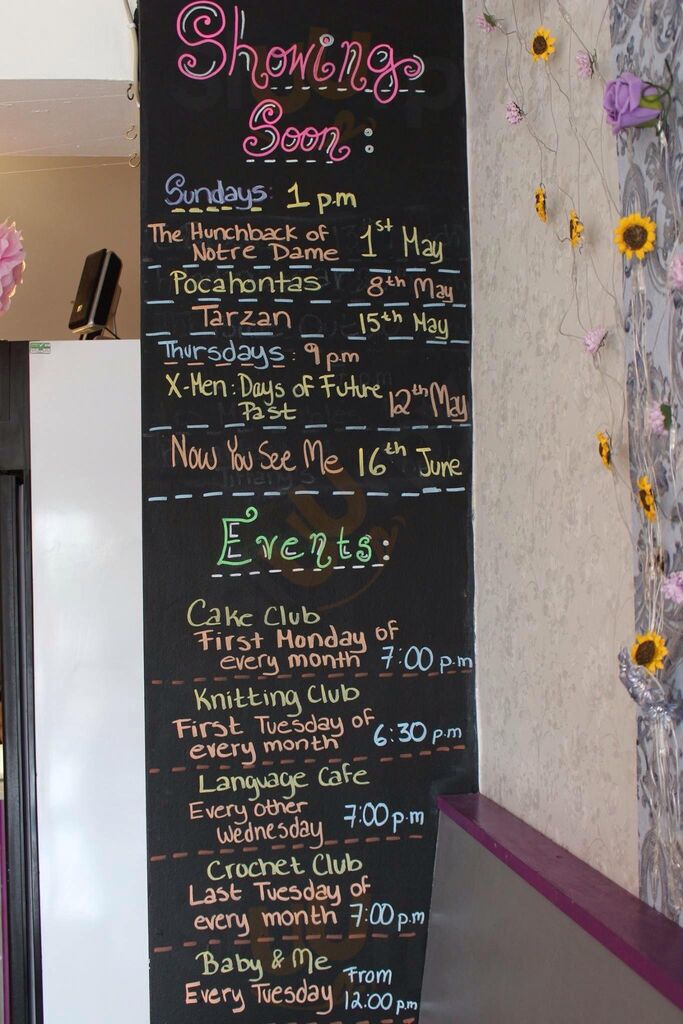 Showing
Soon:
Sundays: 1 p.m
The Hunchback of
Notre Dame 1st May
Pocahontas 8th May
Tarzan 15th May
Thursdays: 9 p.m
X-Men: Days of Future
Past 12th May
Now You See Me 16th June
Events:
Cake Club
First Monday of
every month 7:00 p.m
Knitting Club
First Tuesday of
every month 6:30 p.m
Language Cafe
Every other
Wednesday 7:00 p.m
Crochet Club
Last Tuesday of
every month 7:00 p.m
Baby & Me
Every Tuesday From
12.00 p.m